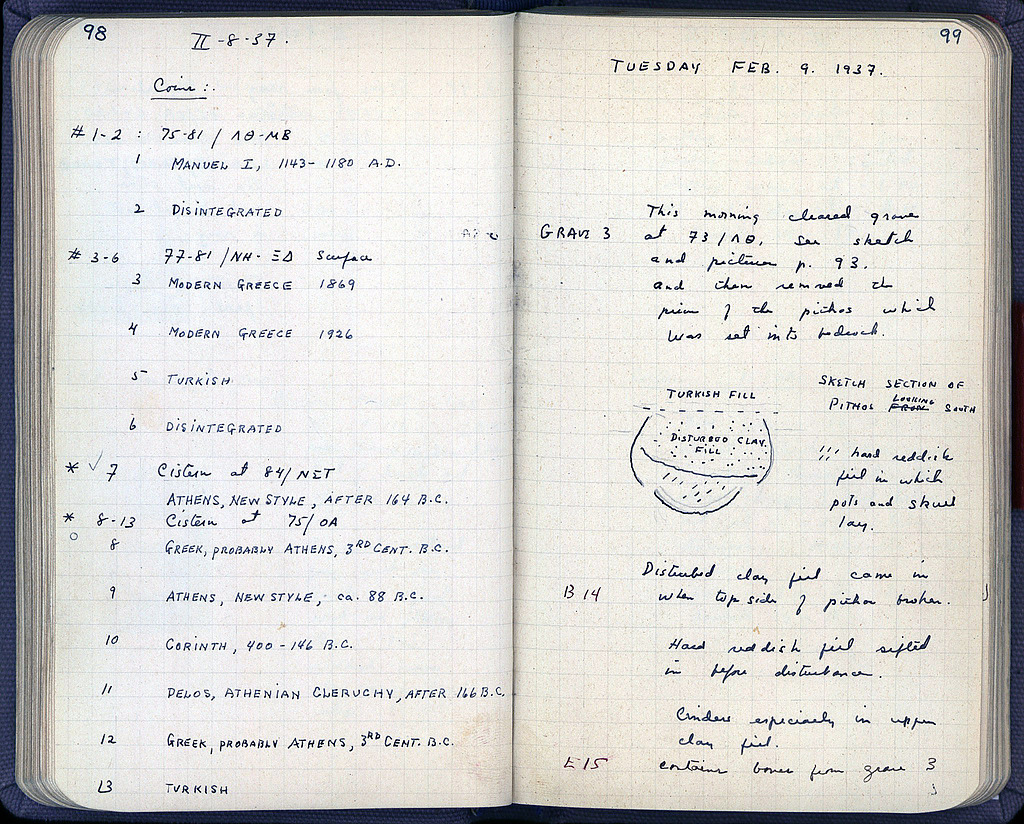 98
II-8-37.
Coins:.
# 1-2 : 75-81 / ΛΘ-ΜΒ
1 MANUEL I, 1143-1180 A.D.
2 DISINTEGRATED
# 3-6 77-81 / ΝΗ-ΞΔ Surface
3 MODERN GREECE 1869
4 MODERN GREECE 1926
5 TURKISH
6 DISINTEGRATED
* ✓ 7 Cistern at 84/ΝΣΤ
ATHENS, NEW STYLE, AFTER 164 B.C.
* 8-13 Cistern at 75/ΟΑ
8 GREEK, PROBABLY ATHENS, 3RD CENT. B.C.
9 ATHENS, NEW STYLE, ca. 88 B.C.
10 CORINTH, 400-146 B.C.
11 DELOS, ATHENIAN CLERUCHY, AFTER 166 B.C.
12 GREEK, PROBABLY ATHENS, 3RD CENT. B.C.
13 TURKISH
99
TUESDAY FEB. 9. 1937.
This morning cleared grave
GRAVE 3 at 73/ΛΘ, see sketch
and picture p. 93.
and then removed the
pieces of the pithos which
was set into bedrock.
SKETCH SECTION OF
PITHOS FROM LOOKING SOUTH
TURKISH FILL
DISTURBED CLAY
FILL
hard reddish
fill in which
pots and skull
lay.
Disturbed clay fill came in
B 14 when top side of pithos broken.
Hard reddish fill sifted
in before disturbance.
Cinders especially in upper
clay fill.
E 15 contains bones from grave 3